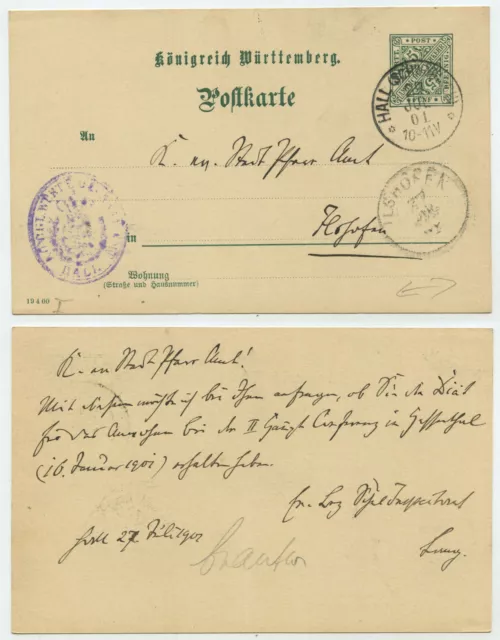 Königreich Württemberg.
Postkarte
POST
HALL (SCHWÄB.)
27
JUL
01.
10-11V
An
K. ev. Stadt Pfarr Amt
ILSHOFEN
27
in
Ilshofen
HALL
Wohnung
(Straße und Hausnummer)
19 4 00
K. ev. Stadt Pfarr Amt!
möchte ich bei Ihnen anfragen, ob Sie die Diät
für das bei der II Conferenz in Hessenthal
(16. Januar 1901) erhalten haben.
Ev. Bez Schulinspektorat
Hall 27. Juli 1901